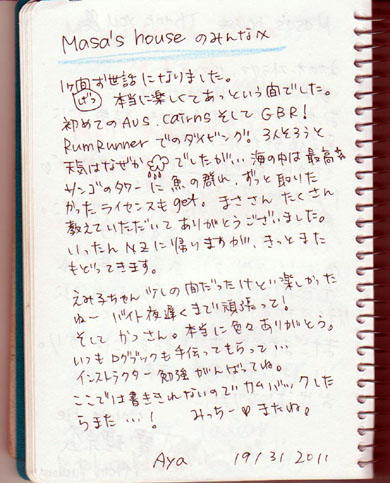 Masa's house のみんなへ
1ヶ間お世話になりました。
げつ
本当に楽しくてあっという間でした。
初めてのAUS、cairnsそしてGBR!
RumRunnerでのダイビング! 3人そろうと
天気はなぜか でしたが… 海の中は最高☆
サンゴのタワーに魚の群れ、ずっと取りた
かったライセンスもget。まささんたくさん
教えていただいてありがとうございました。
いったんNZに帰りますが、きっとまた
もどってきます。
えみるちゃん 少しの間だったけど楽しかった
ねー バイト夜遅くまで頑張って!
そして かっさん。本当に色々ありがとう。
いつもログブックも手伝ってもらって…
インストラクター勉強がんばってね。
ここでは書ききれないのでカムバックした
らまた…! みっちー♡またね。
Aya 19/31 2011